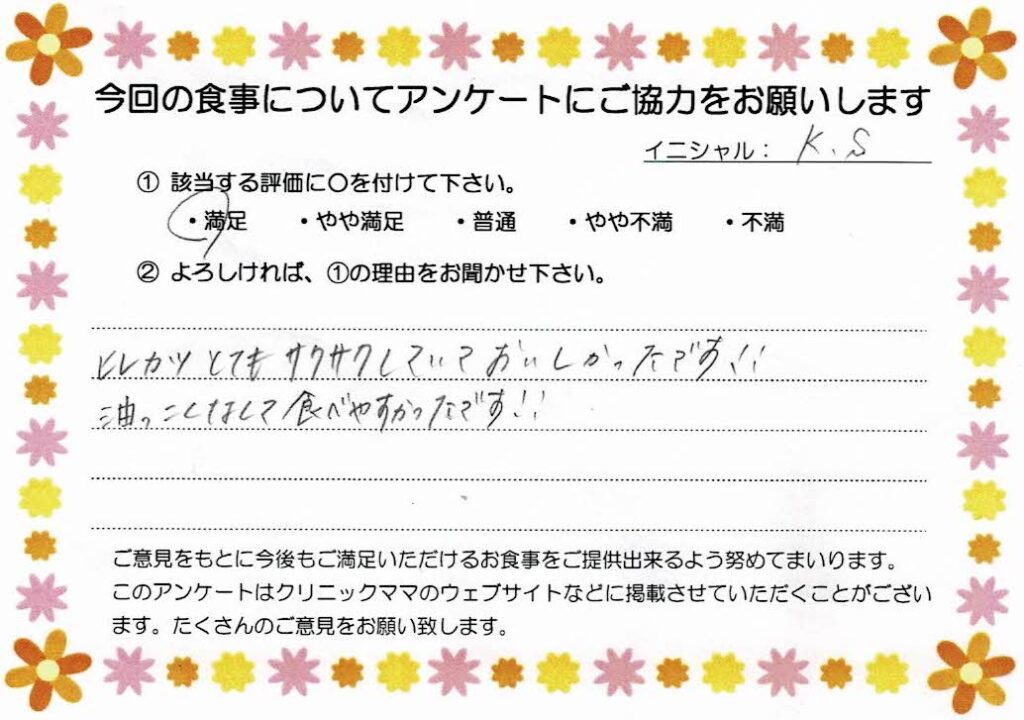 今回の食事についてアンケートにご協力をお願いします
イニシャル： K.S
① 該当する評価に〇を付けて下さい。
・満足 ・やや満足 ・普通 ・やや不満 ・不満
② よろしければ、①の理由をお聞かせ下さい。
ヒレカツとてもサクサクしていておいしかったです!!
油っこくなくて食べやすかったです!!
ご意見をもとに今後もご満足いただけるお食事をご提供出来るよう努めてまいります。
このアンケートはクリニックママのウェブサイトなどに掲載させていただくことがござい
ます。たくさんのご意見をお願い致します。